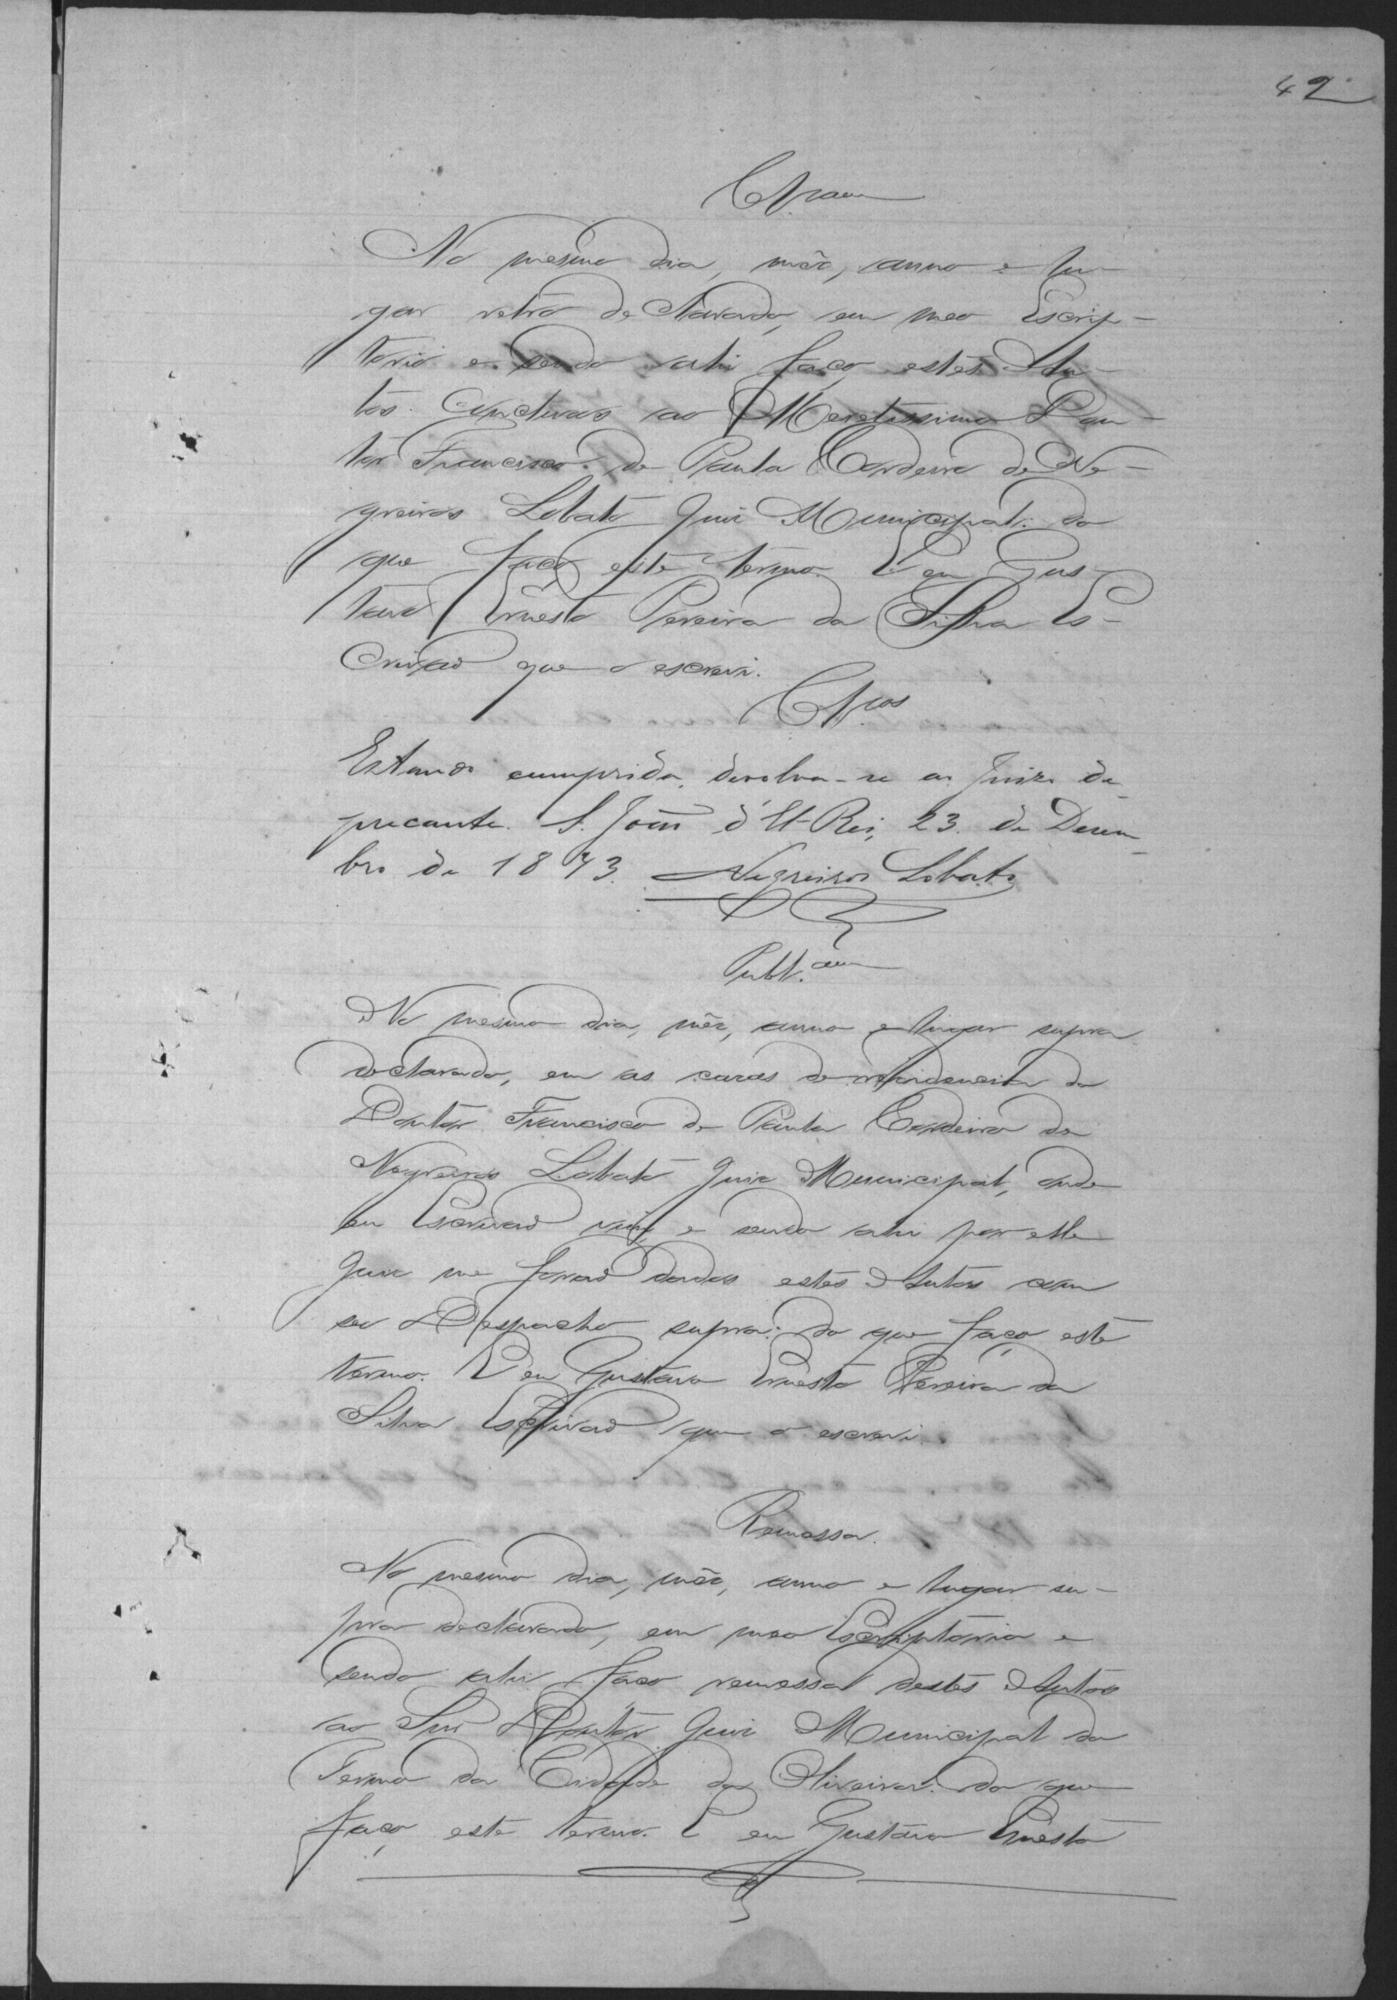 42
Clsam
No mesmo dia, mêz, anno e lu-
gar retro declarado, em meo Escrip-
torio e sendo ahi faço estes Au-
tos Conclusos ao Meretissimo Dou-
tor Francisco de Paula Cordeiro de Ne-
greiros Lobato Juiz Municipal. do
que faço este termo. E eu Gus-
tavo Ernesto Pereira da Silva Es-
crivão que o escrevi.
Clsos
Estando cumprida, devolva-se ao Juizo de-
precante. S. João d'El-Rei, 23 de Dezem-
bro de 1873. Negreiros Lobato
Publ.am
No mesmo dia, mêz, anno e lugar supra
declarado, em as cazas de rezidencia do
Doutor Francisco de Paula Cordeiro de
Negreiros Lobato Juiz Municipal, onde
eu Escrivão vim e sendo ahi por elle
Juiz me forão dados estes Autos com
seo Despacho supra: do que faço este
termo. E eu Gustavo Ernesto Pereira da
Silva Escrivão que o escrevi.
Remessa.
No mesmo dia, mêz, anno e lugar su-
pra declarado, em meo Escriptorio e
sendo ahi faço remessa destes Autos
ao Snr Doutor Juiz Municipal do
Termo da Cidade da Oliveira. do que
faço este termo. E eu Gustavo Ernesto